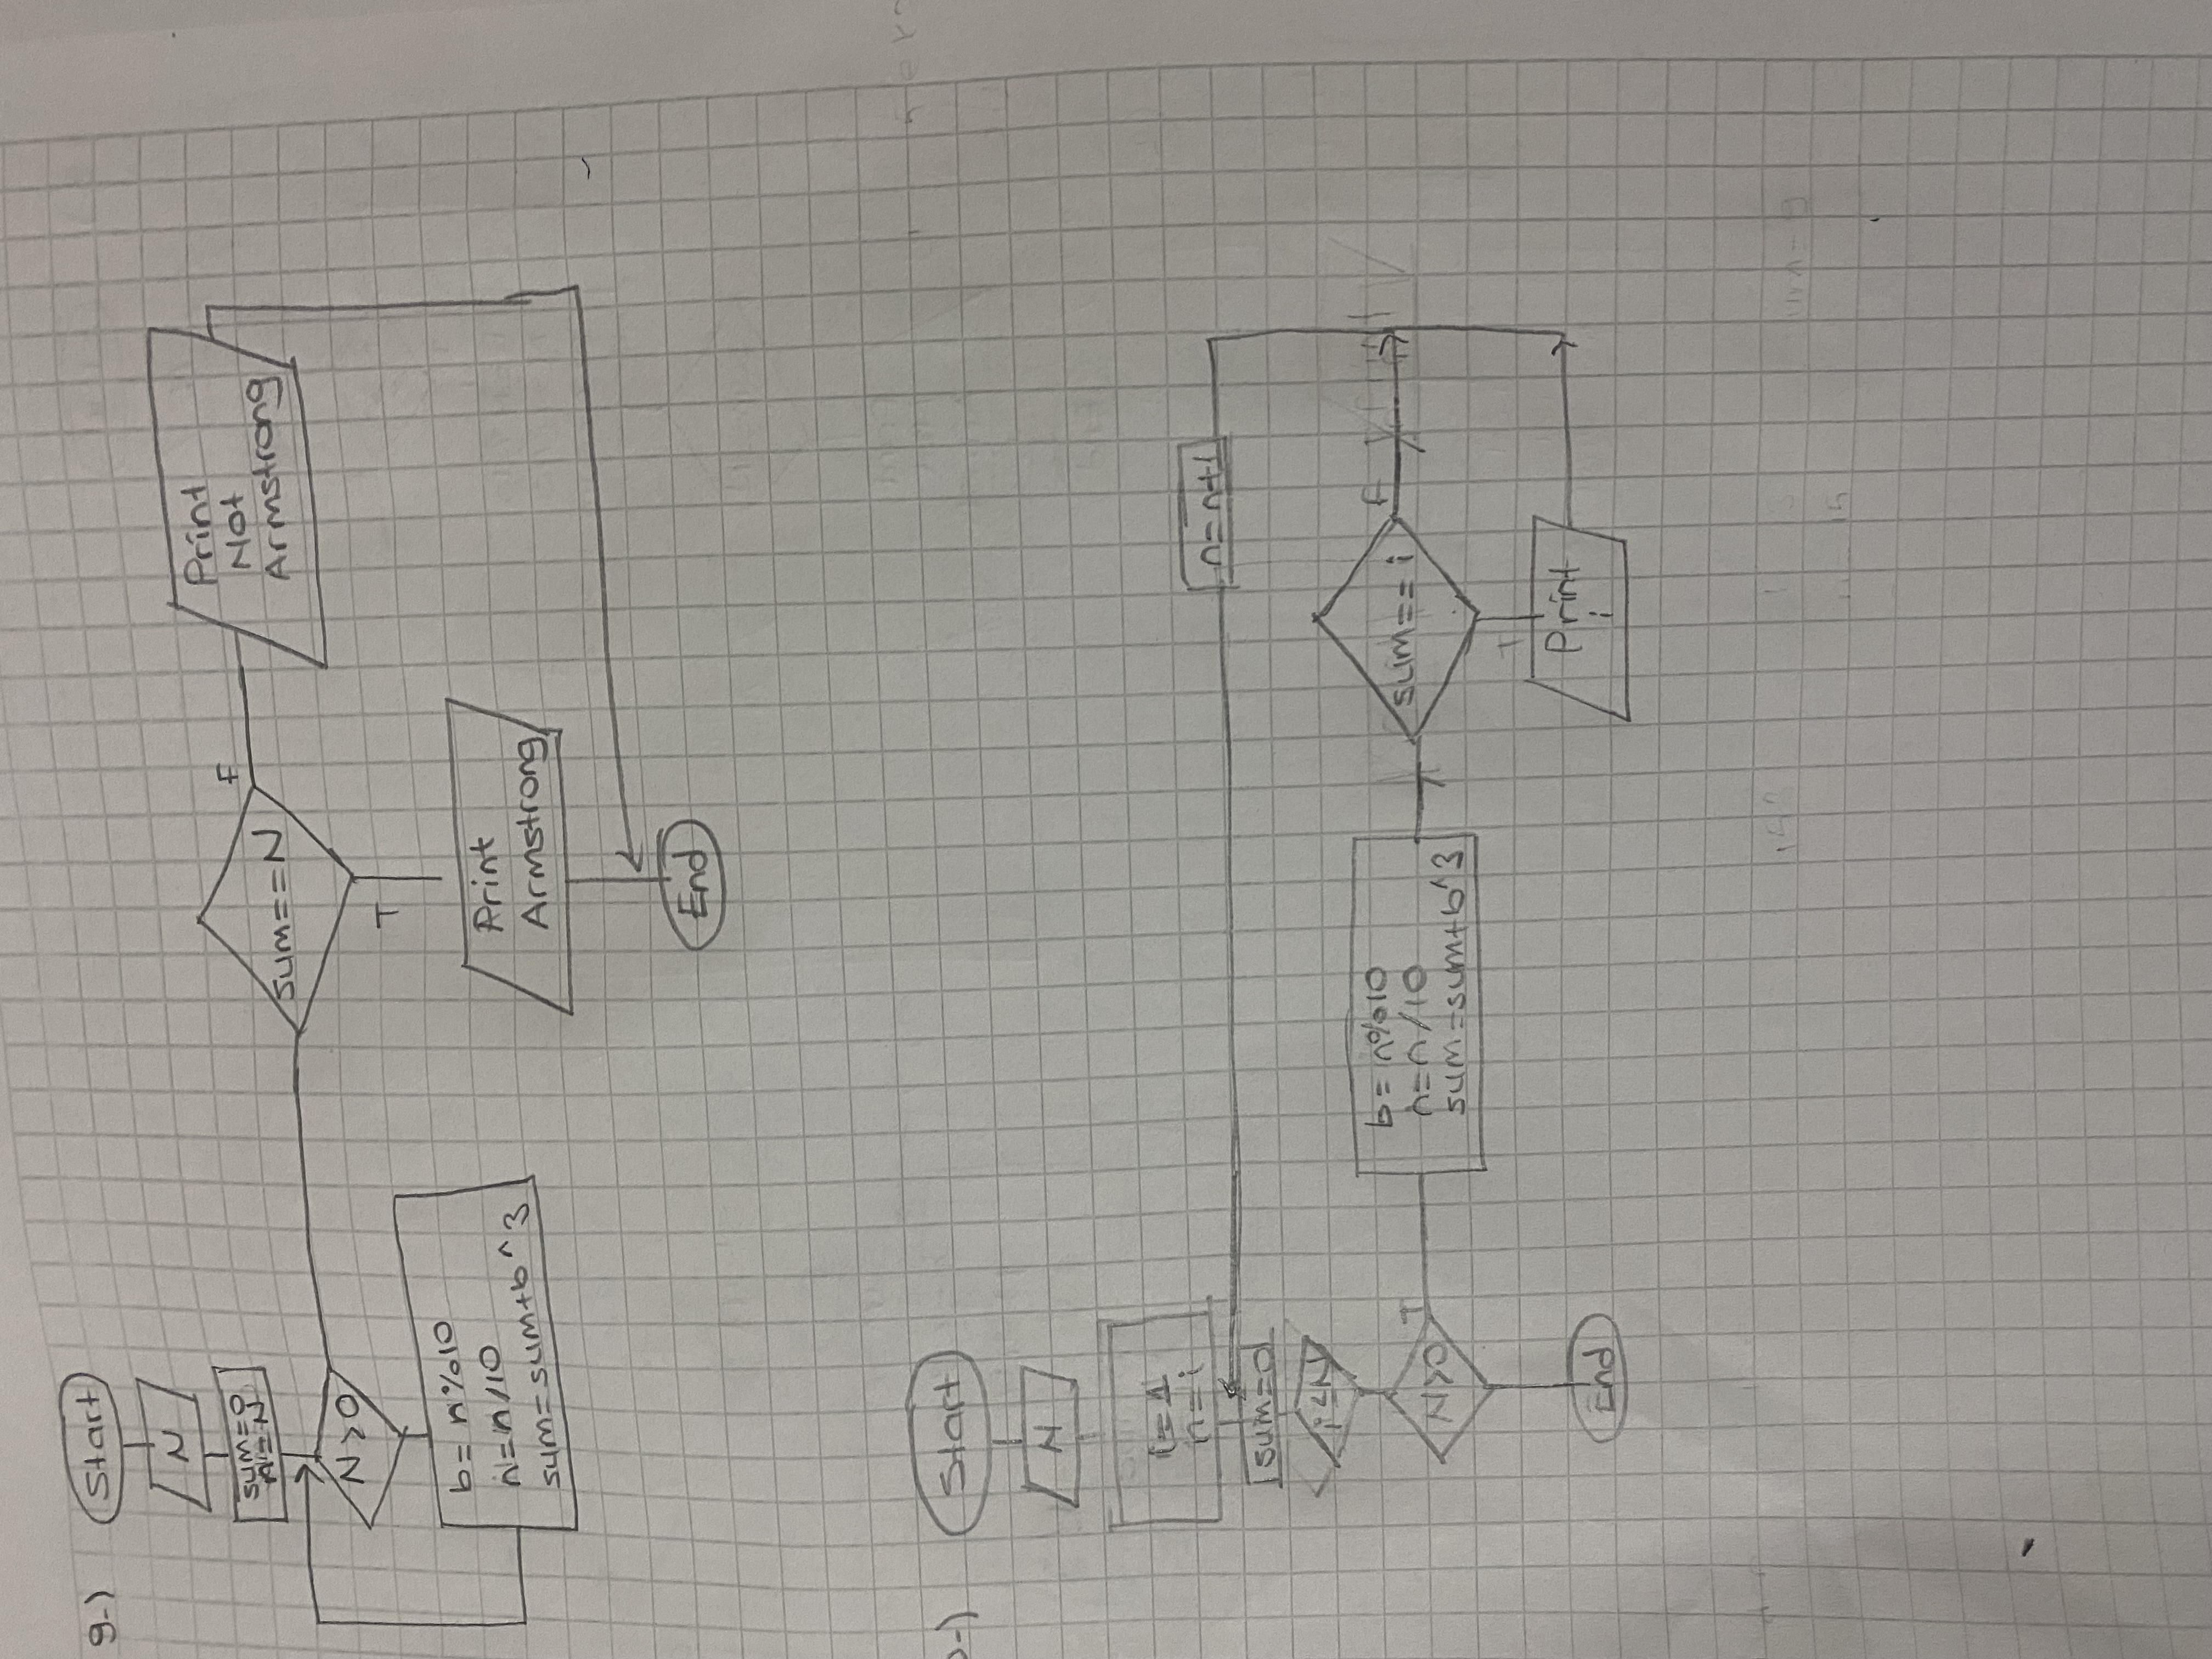 9-)
Start
N
sum=0
n=N
N>0
b= n%10
n=n/10
sum=sum+b^3
sum==N
F
Print
Not
Armstrong
T
Print
Armstrong
End
Start
N
i=1
n=i
n=n+1
sum=0
i≤N
N>0
T
b= n%10
n=n/10
sum=sum+b^3
sum== i
F
T
Print
i
End